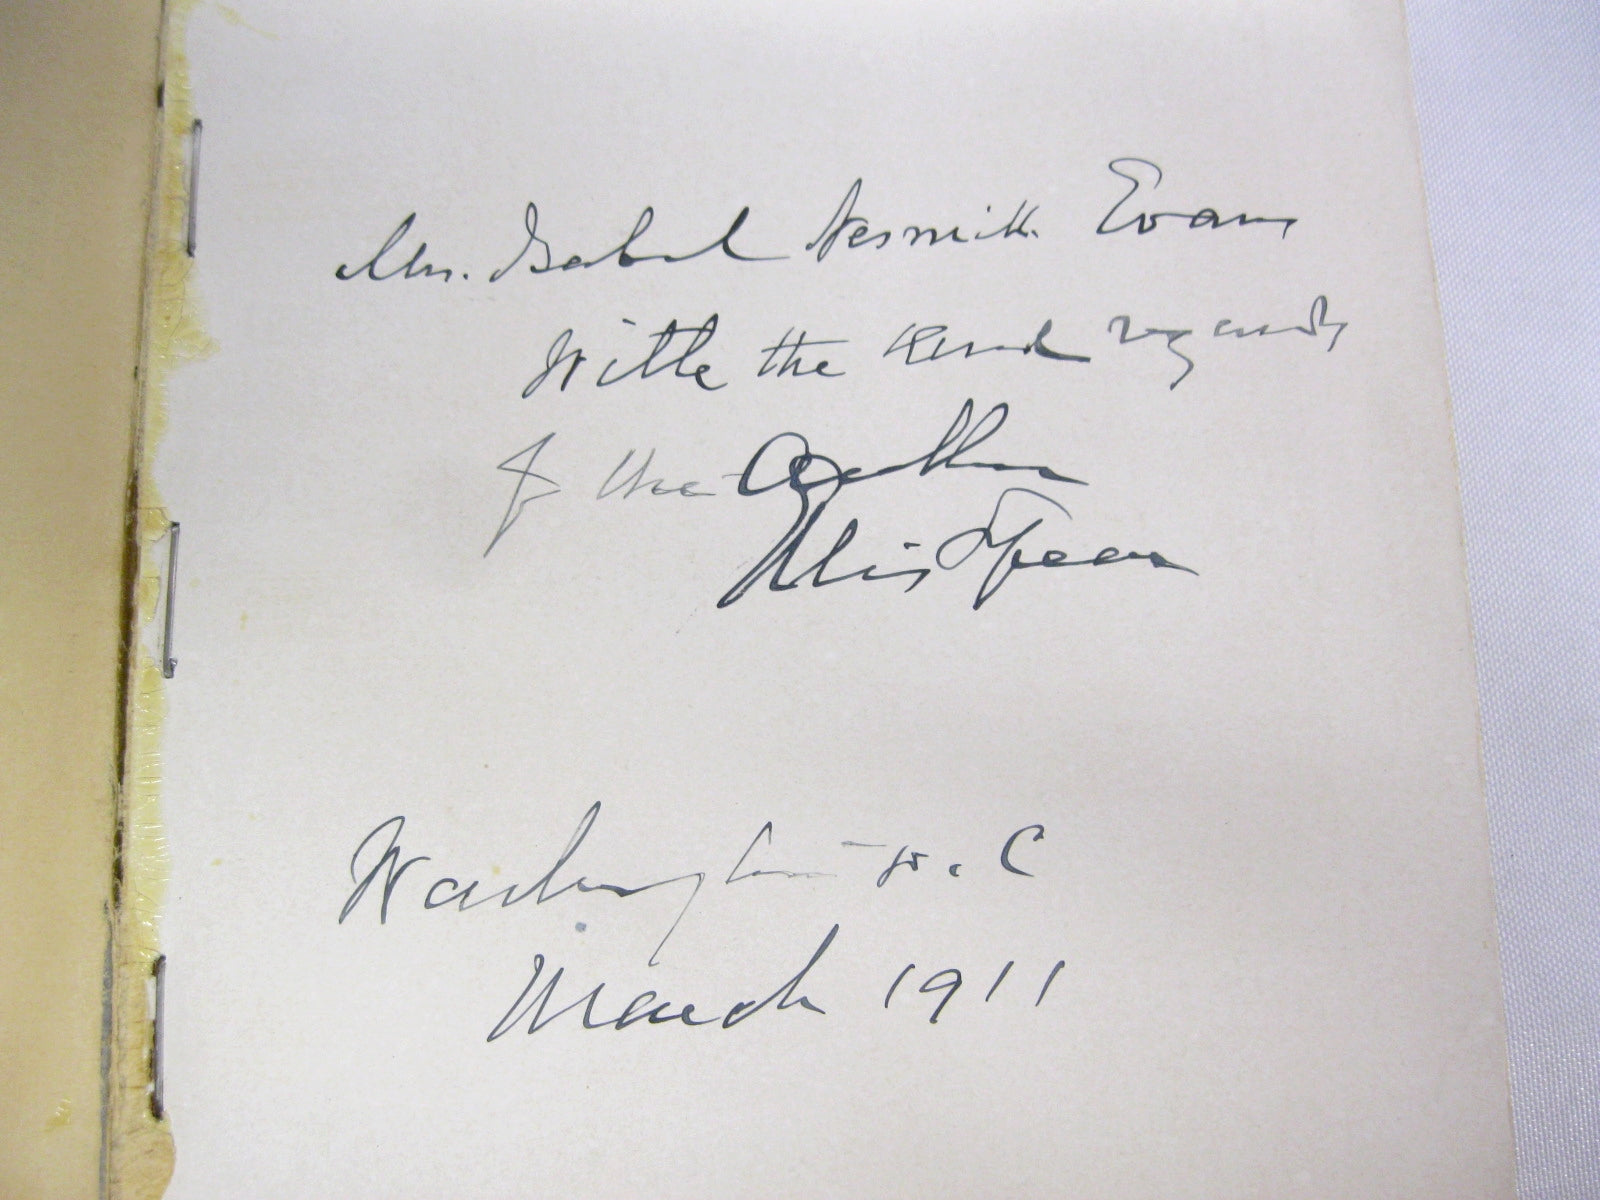 Mrs. Isabel Nesmith Evans
With the kind regards
of the Author
Ellis Spear
Washington D. C
March 1911